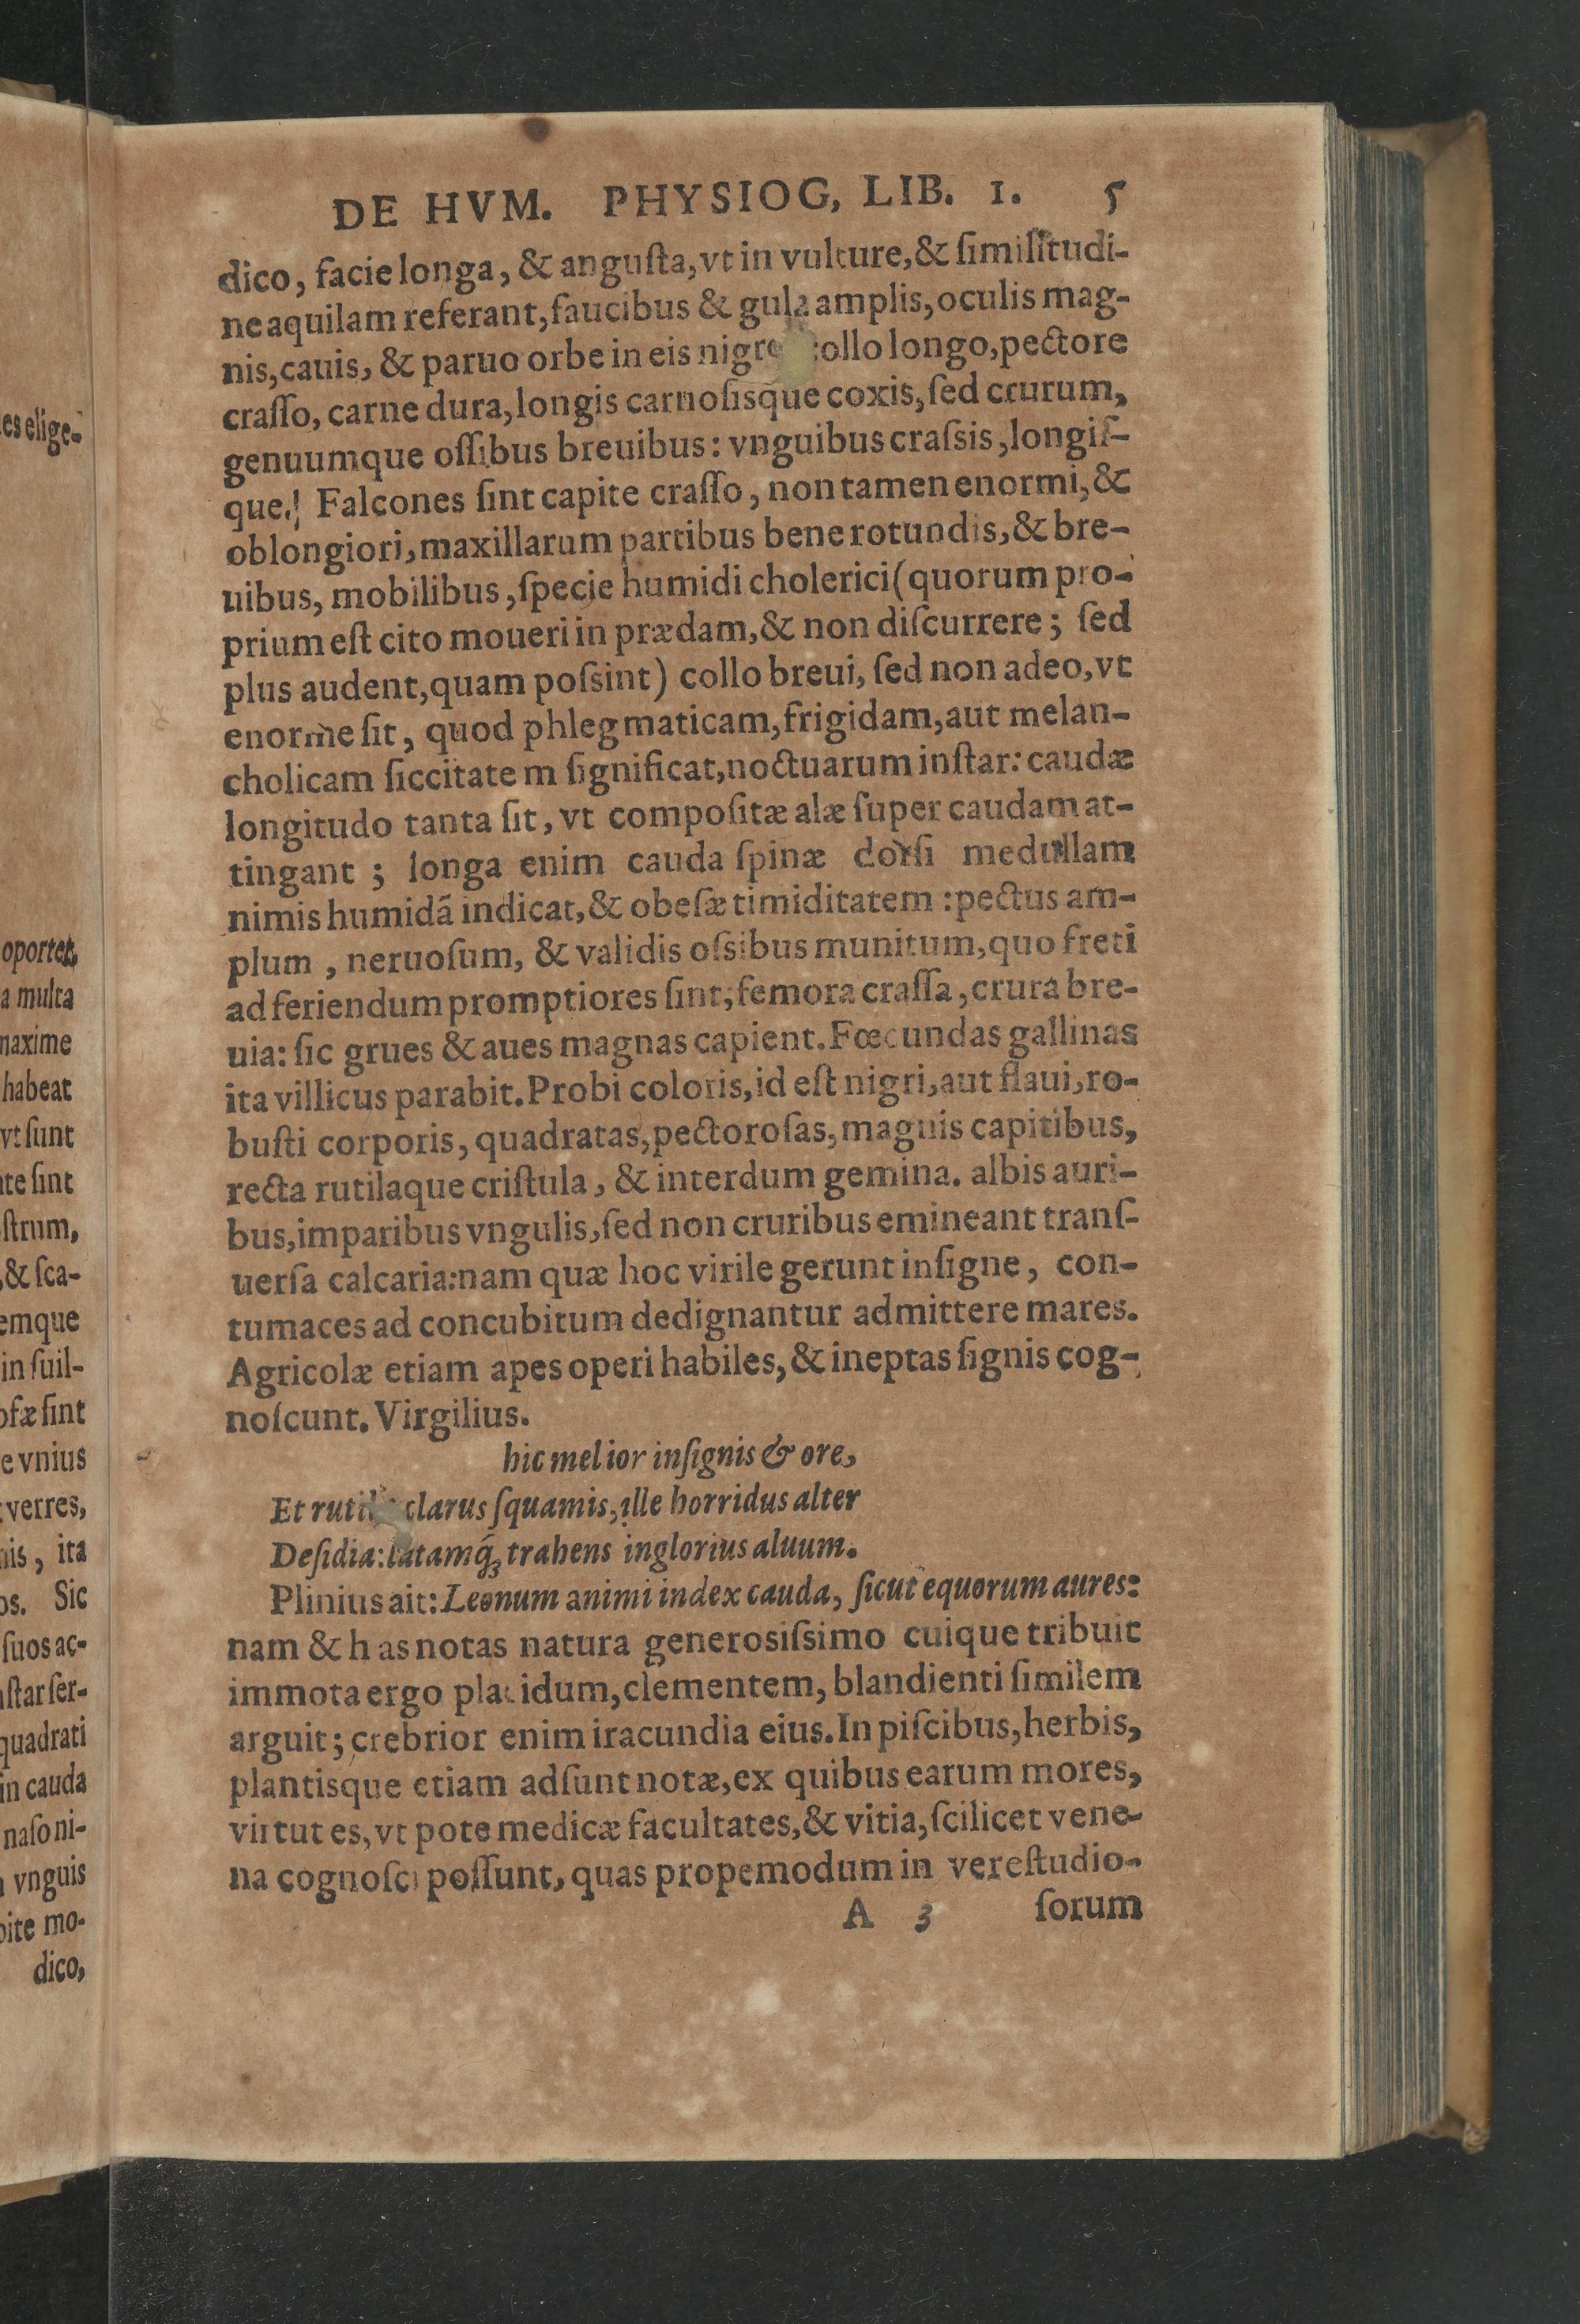 es elige-
oportet,
a multa
maxime
habeat
vt sunt
te sint
ſtrum,
& ſca-
emque
in ſuil-
oſæ ſint
e vnius
verres,
nis, ita
os. Sic
ſuos ac-
ſtar ſer-
quadrati
in cauda
naſo ni-
vnguis
pite mo-
dico,
DE HVM. PHYSIOG, LIB. 1. 5
dico, facie longa, & anguſta, vt in vulture, & ſimilitudi-
ne aquilam referant, faucibus & gula amplis, oculis mag-
nis, cauis, & paruo orbe in eis nigro collo longo, pectore
craſſo, carne dura, longis carnoſisque coxis, ſed crurum,
genuumque oſſibus breuibus: vnguibus craſsis, longiſ-
que. Falcones ſint capite craſſo, non tamen enormi, &
oblongiori, maxillarum partibus bene rotundis, & bre-
uibus, mobilibus, ſpecie humidi cholerici (quorum pro-
prium eſt cito moueri in prædam, & non diſcurrere; ſed
plus audent, quam poſsint) collo breui, ſed non adeo, vt
enorme ſit, quod phlegmaticam, frigidam, aut melan-
cholicam ſiccitatem ſignificat, noctuarum inſtar: caudæ
longitudo tanta ſit, vt compoſitæ alæ ſuper caudam at-
tingant; longa enim cauda ſpinæ dorſi medullam
nimis humidã indicat, & obeſæ timiditatem: pectus am-
plum, neruoſum, & validis oſsibus munitum, quo freti
ad feriendum promptiores ſint; femora craſſa, crura bre-
uia: ſic grues & aues magnas capient. Fœcundas gallinas
ita villicus parabit. Probi coloris, id eſt nigri, aut flaui, ro-
buſti corporis, quadratas, pectoroſas, magnis capitibus,
recta rutilaque criſtula, & interdum gemina. albis auri-
bus, imparibus vngulis, ſed non cruribus emineant tranſ-
uerſa calcaria: nam quæ hoc virile gerunt inſigne, con-
tumaces ad concubitum dedignantur admittere mares.
Agricolæ etiam apes operi habiles, & ineptas ſignis cog-
noſcunt. Virgilius.
hic melior inſignis & ore,
Et rutilis clarus ſquamis, ille horridus alter
Deſidia: latamq́; trahens inglorius aluum.
Plinius ait: Leonum animi index cauda, ſicut equorum aures:
nam & has notas natura generosiſsimo cuique tribuit
immota ergo placidum, clementem, blandienti ſimilem
arguit; crebrior enim iracundia eius. In piſcibus, herbis,
plantisque etiam adſunt notæ, ex quibus earum mores,
virtutes, vt pote medicæ facultates, & vitia, ſcilicet vene-
na cognoſci poſſunt, quas propemodum in vere ſtudio-
A 3 ſorum